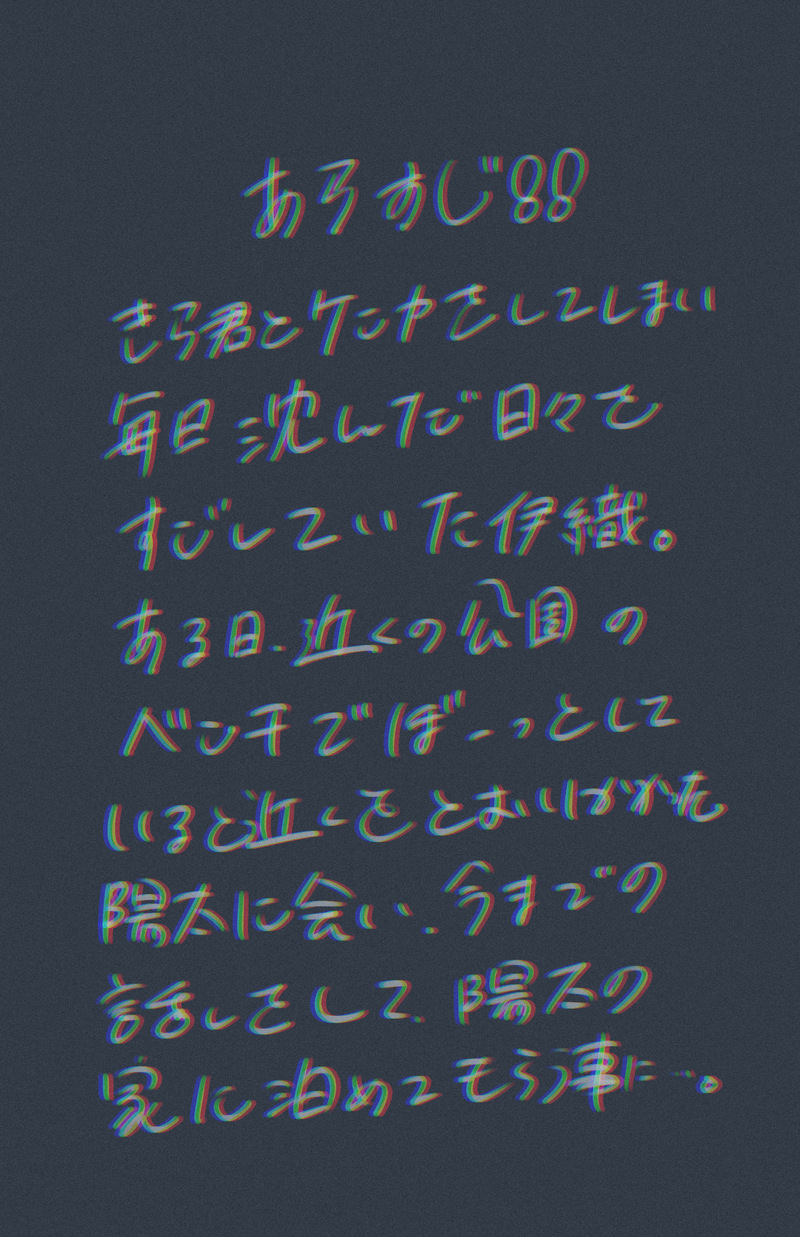 あらすじ!!
きら君とケンカをしてしまい
毎日沈んだ日々を
すごしていた伊織。
ある日、近くの公園の
ベンチでぼーっとして
いると近くをとおりかかった
陽太に会い、今までの
話しをして、陽太の
家に泊めてもらう事に…。